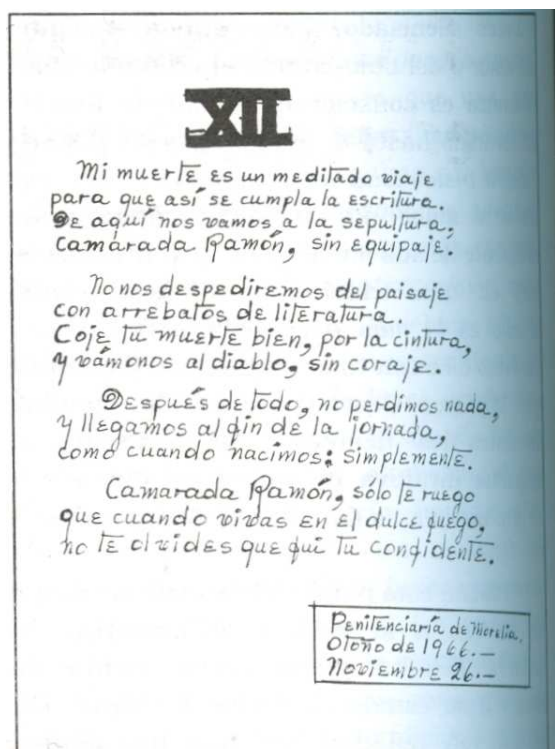 XII
Mi muerte es un meditado viaje
para que así se cumpla la escritura.
De aquí nos vamos a la sepultura,
Camarada Ramón, sin equipaje.
No nos despediremos del paisaje
con arrebatos de literatura.
Coje tu muerte bien, por la cintura,
y vámonos al diablo, sin coraje.
Después de todo, no perdimos nada,
y llegamos al fin de la jornada,
como cuando nacimos: simplemente.
Camarada Ramón, sólo te ruego
que cuando vivas en el dulce fuego,
no te olvides que fui tu confidente.
Penitenciaría de Morelia.
Otoño de 1966.—
Noviembre 26.—